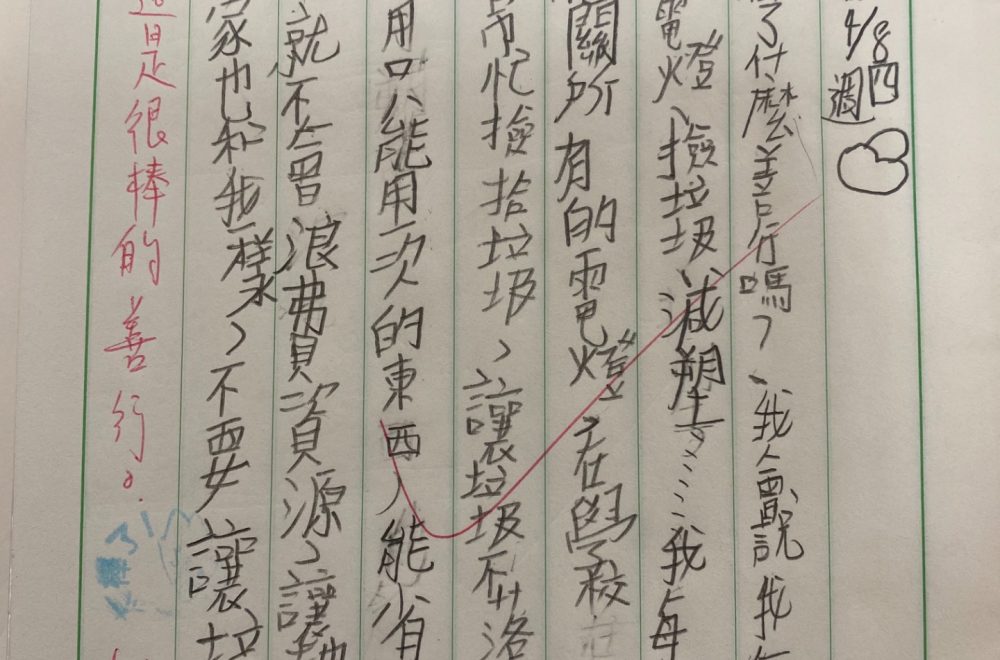 4/8 週四
了什麼善行嗎?我要說我
電燈、撿垃圾、減塑……我每
關所有的電燈,在學校
常忙撿拾垃圾,讓垃圾不
用只能用一次的東西,能省
就不會浪費資源,讓
家也和我一樣,不要讓垃
這是很棒的善行。